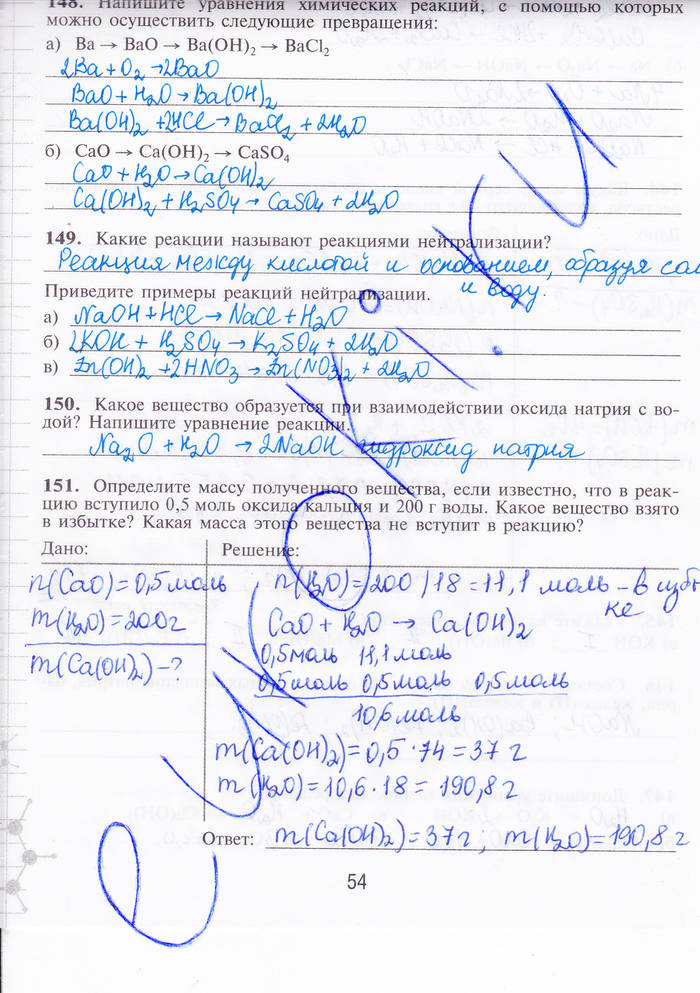 148. Напишите уравнения химических реакций, с помощью которых
можно осуществить следующие превращения:
а) Ba → BaO → Ba(OH)₂ → BaCl₂
2Ba + O₂ → 2BaO
BaO + H₂O → Ba(OH)₂
Ba(OH)₂ + 2HCl → BaCl₂ + 2H₂O
б) CaO → Ca(OH)₂ → CaSO₄
CaO + H₂O → Ca(OH)₂
Ca(OH)₂ + H₂SO₄ → CaSO₄ + 2H₂O
149. Какие реакции называют реакциями нейтрализации?
Реакция между кислотой и основанием, образуя сол
и воду.
Приведите примеры реакций нейтрализации.
а) NaOH + HCl → NaCl + H₂O
б) 2KOH + H₂SO₄ → K₂SO₄ + 2H₂O
в) Zn(OH)₂ + 2HNO₃ → Zn(NO₃)₂ + 2H₂O
150. Какое вещество образуется при взаимодействии оксида натрия с во-
дой? Напишите уравнение реакции.
Na₂O + H₂O → 2NaOH гидроксид натрия
151. Определите массу полученного вещества, если известно, что в реак-
цию вступило 0,5 моль оксида кальция и 200 г воды. Какое вещество взято
в избытке? Какая масса этого вещества не вступит в реакцию?
Дано: Решение:
n(CaO) = 0,5 моль n(H₂O) = 200/18 = 11,1 моль – в избы
тке
m(H₂O) = 200 г CaO + H₂O → Ca(OH)₂
0,5 моль 11,1 моль
m(Ca(OH)₂) – ?
0,5 моль 0,5 моль 0,5 моль
10,6 моль
m(Ca(OH)₂) = 0,5 · 74 = 37 г
m(H₂O) = 10,6 · 18 = 190,8 г
Ответ: m(Ca(OH)₂) = 37 г, m(H₂O) = 190,8 г
54